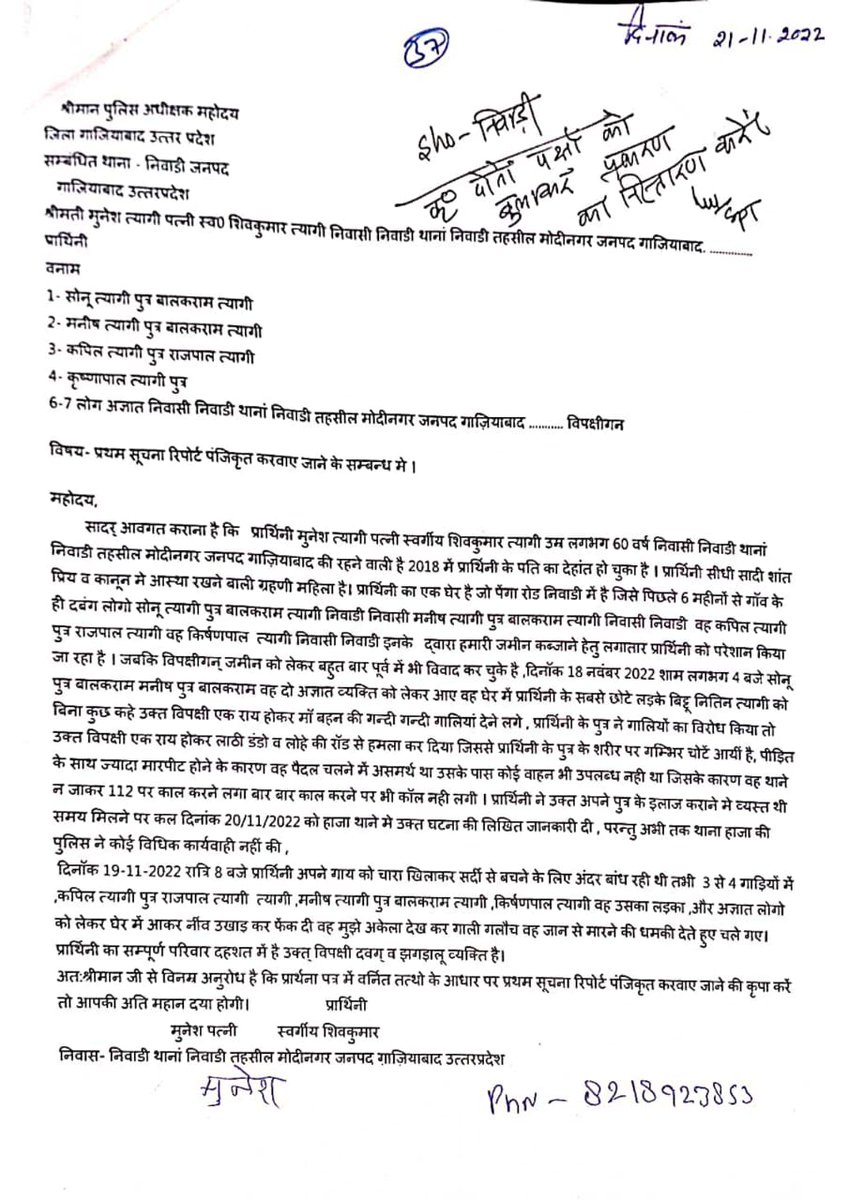 दिनाकं 21-11-2022
37
श्रीमान पुलिस अधीक्षक महोदय
जिला गाजियाबाद उत्तर प्रदेश
सम्बंधित थाना - निवाडी जनपद
गाजियाबाद उत्तरप्रदेश
Sho - निवाड़ी
कृ० दोनों पक्षों को
बुलाकर प्रकरण
का निस्तारण करें
श्रीमती मुनेश त्यागी पत्नी स्व0 शिवकुमार त्यागी निवासी निवाडी थानां निवाडी तहसील मोदीनगर जनपद गाजियाबाद. ..............
प्रार्थिनी
वनाम
1- सोनू त्यागी पुत्र बालकराम त्यागी
2- मनीष त्यागी पुत्र बालकराम त्यागी
3- कपिल त्यागी पुत्र राजपाल त्यागी
4- कृष्णापाल त्यागी पुत्र
6-7 लोग अज्ञात निवासी निवाडी थानां निवाडी तहसील मोदीनगर जनपद गाज़ियाबाद ........... विपक्षीगन
विषय- प्रथम सूचना रिपोर्ट पंजिकृत करवाए जाने के सम्बन्ध मे ।
महोदय,
सादर् आवगत कराना है कि प्रार्थिनी मुनेश त्यागी पत्नी स्वर्गीय शिवकुमार त्यागी उम्र लगभग 60 वर्ष निवासी निवाडी थानां
निवाडी तहसील मोदीनगर जनपद गाज़ियाबाद की रहने वाली है 2018 में प्रार्थिनी के पति का देहांत हो चुका है । प्रार्थिनी सीधी सादी शांत
प्रिय व कानून मे आस्था रखने बाली ग्रहणी महिला है। प्रार्थिनी का एक घेर है जो पेंगा रोड निवाडी में है जिसे पिछले 6 महीनों से गाॅव के
ही दबंग लोगो सोनू त्यागी पुत्र बालकराम त्यागी निवाडी निवासी मनीष त्यागी पुत्र बालकराम त्यागी निवासी निवाडी वह कपिल त्यागी
पुत्र राजपाल त्यागी वह किर्षणपाल त्यागी निवासी निवाडी इनके द्वारा हमारी जमीन कब्जाने हेतु लगातार प्रार्थिनी को परेशान किया
जा रहा है । जबकि विपक्षीगन् जमीन को लेकर बहुत बार पूर्व में भी विवाद कर चुके है ,दिनाॅक 18 नवंबर 2022 शाम लगभग 4 बजे सोनू
पुत्र बालकराम मनीष पुत्र बालकराम वह दो अज्ञात व्यक्ति को लेकर आए वह घेर में प्रार्थिनी के सबसे छोटे लड़के बिट्टू नितिन त्यागी को
बिना कुछ कहे उक्त विपक्षी एक राय होकर माँ बहन की गन्दी गन्दी गालियां देने लगे , प्रार्थिनी के पुत्र ने गालियों का विरोध किया तो
उक्त विपक्षी एक राय होकर लाठी डंडो व लोहे की रॉड से हमला कर दिया जिससे प्रार्थिनी के पुत्र के शरीर पर गम्भिर चोटें आयीं है, पीड़ित
के साथ ज्यादा मारपीट होने के कारण वह पैदल चलने में असमर्थ था उसके पास कोई वाहन भी उपलब्ध नही था जिसके कारण वह थाने
न जाकर 112 पर काल करने लगा बार बार काल करने पर भी कॉल नही लगी । प्रार्थिनी ने उक्त अपने पुत्र के इलाज कराने मे व्यस्त थी
समय मिलने पर कल दिनांक 20/11/2022 को हाजा थाने मे उक्त घटना की लिखित जानकारी दी , परन्तु अभी तक थाना हाजा की
पुलिस ने कोई विधिक कार्यवाही नहीं की ,
दिनाॅक 19-11-2022 रात्रि 8 बजे प्रार्थिनी अपने गाय को चारा खिलाकर सर्दी से बचने के लिए अंदर बांध रही थी तभी 3 से 4 गाड़ियों में
,कपिल त्यागी पुत्र राजपाल त्यागी त्यागी ,मनीष त्यागी पुत्र बालकराम त्यागी ,किर्षणपाल त्यागी वह उसका लड़का ,और अज्ञात लोगो
को लेकर घेर में आकर नींव उखाड़ कर फेंक दी वह मुझे अकेला देख कर गाली गलौच वह जान से मारने की धमकी देते हुए चले गए।
प्रार्थिनी का सम्पूर्ण परिवार दहशत में है उक्त् विपक्षी दवग् व झगड़ालू व्यक्ति है।
अत:श्रीमान जी से विनम्र अनुरोध है कि प्रार्थना पत्र में वर्नित तत्थो के आधार पर प्रथम सूचना रिपोर्ट पंजिकृत करवाए जाने की कृपा करें
तो आपकी अति महान दया होगी। प्रार्थिनी
मुनेश पत्नी स्वर्गीय शिवकुमार
निवास- निवाडी थानां निवाडी तहसील मोदीनगर जनपद ग़ाज़ियाबाद उत्तरप्रदेश
मुनेश
PhN - 8218923853